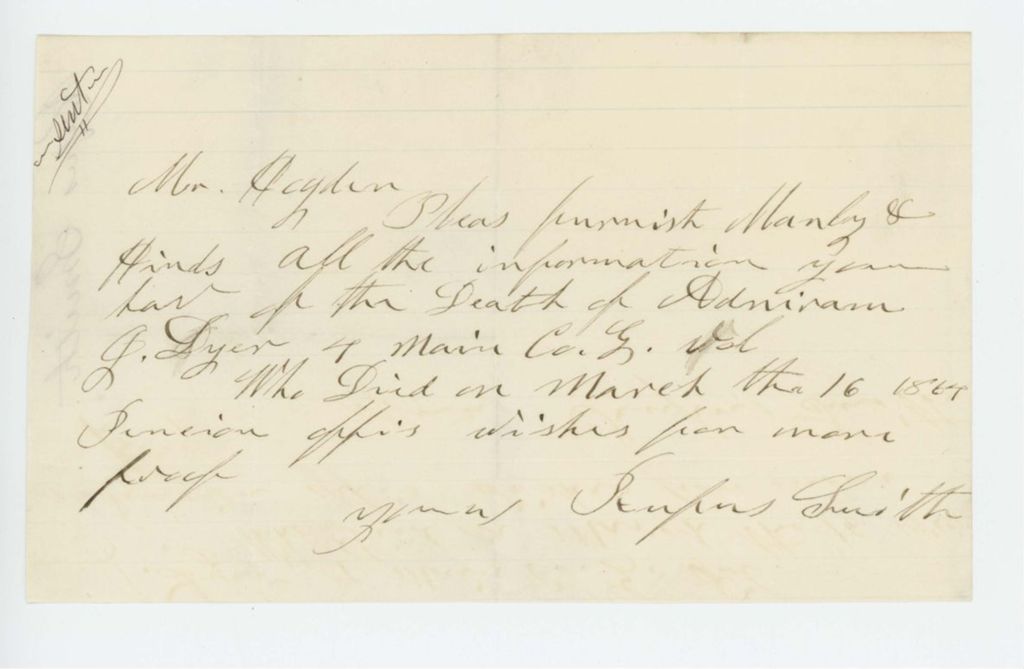 sent
Mr. Hogden
Pleas furnish Manly &
Hinds all the information you
hav of the Death of Adniram
J. Dyer 4 Main Co. G. vol
Who Died on March the 16 1864
Pension offis wishes for more
proof
yours Rufus Smith